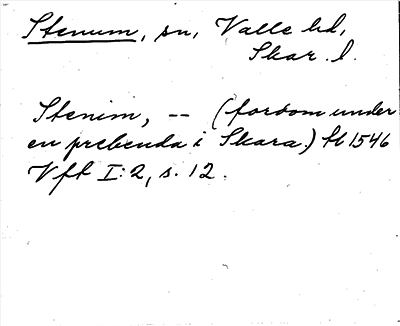 Stenum, sn, Valle hd,
Skar. l.
Stenim, -- (fordom under
en prebenda i Skara.) fl 1546
Vft I:2, s. 12.